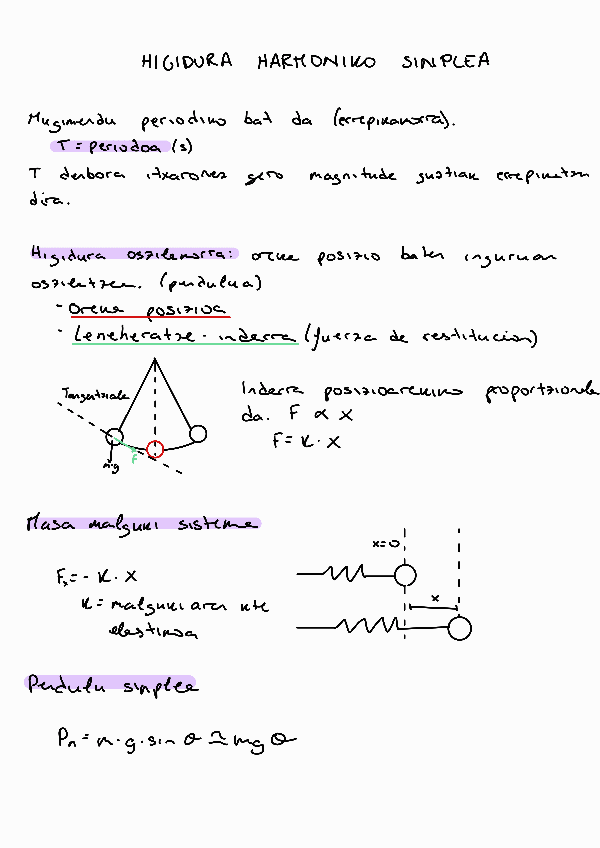 HIGIDURA HARMONIKO SINPLEA
Mugimendu periodiko bat da (errepikakorra).
T = periodoa (s)
T denbora itxaronez gero magnitude guztiak errepikatzen
dira.
Higidura oszilakorra: oreka posizio baten inguruan
oszilatzea. (pendulua)
- Oreka posizioa
- Leheneratze-indarra (fuerza de restitucion)
Tangentziala
F
m·g
Indarra posizioarekiko proportzionala
da. F ∝ x
F = K · x
Masa malguki sistema
x=0
Fx = - K · x
x
K = malgukiaren kte
elastikoa
Pendulu sinplea
Pn = m · g · sin θ ≅ mg θ